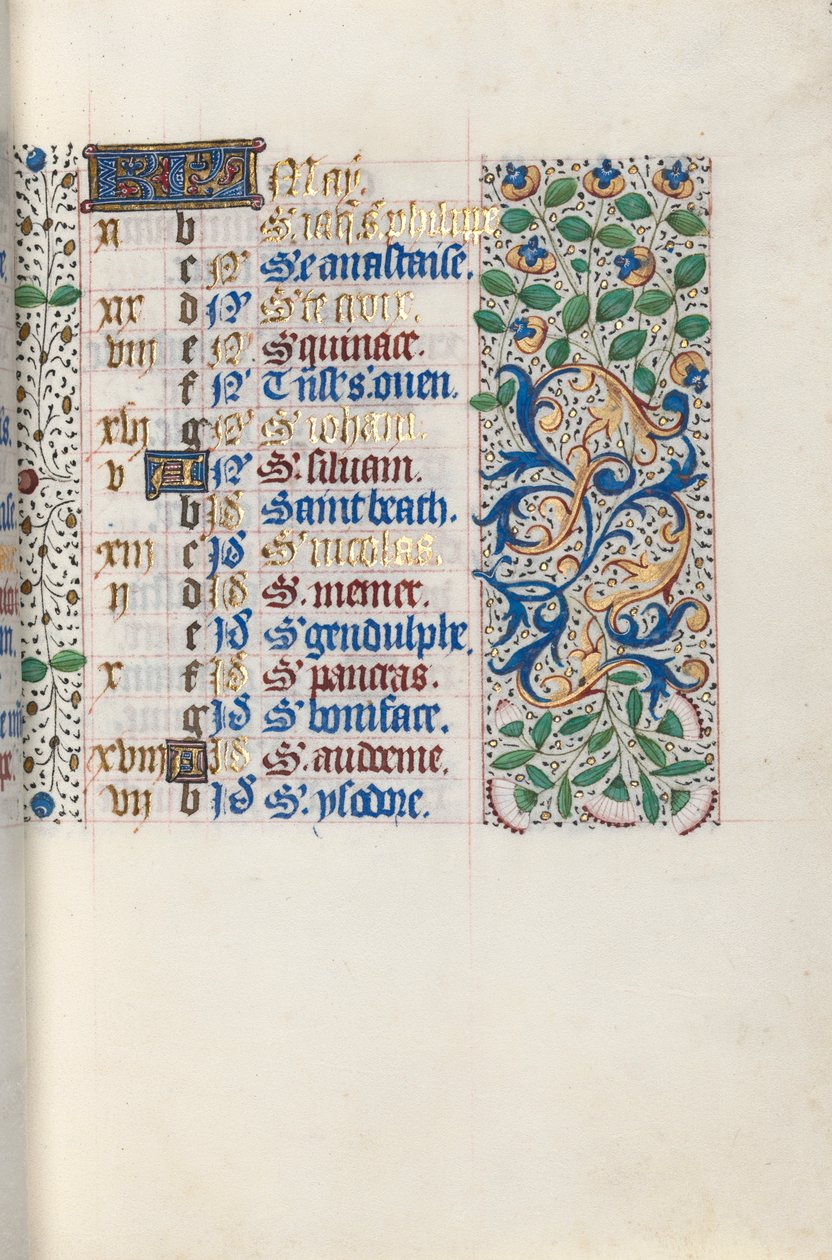 KL May.
xi b S. iaq̄. s. philippe.
c N S'te anastaise.
xix d N S'te avire.
viii e N S' quiriace.
f N T'nsl' s. ouen.
xvi g N S' iohan.
v A N S. siluain.
b Id Saint beath.
xiii c Id S' nicolas.
ii d Id S. memer.
e Id S' gendulphe.
x f Id S' pancras.
g Id S' boniface.
xviii A Id S. audreme.
vii b Id S. ysodore.